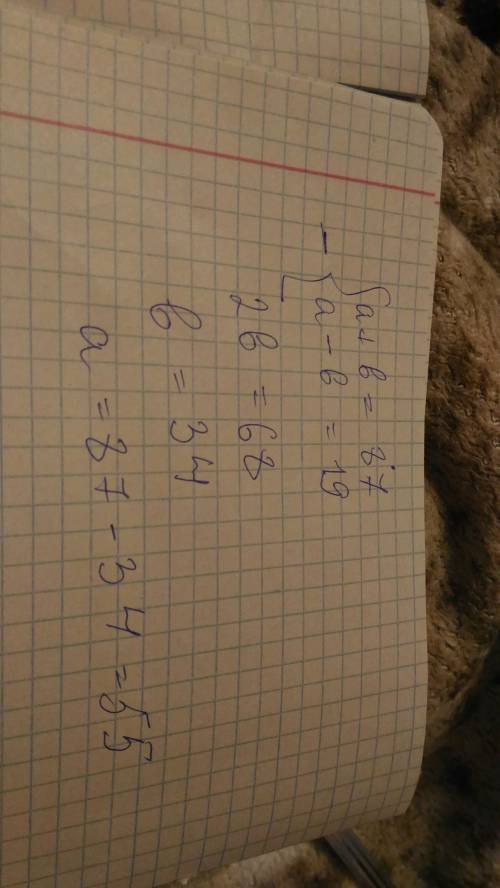 a + b = 87
- { a - b = 19
2b = 68
b = 34
a = 87 - 34 = 55